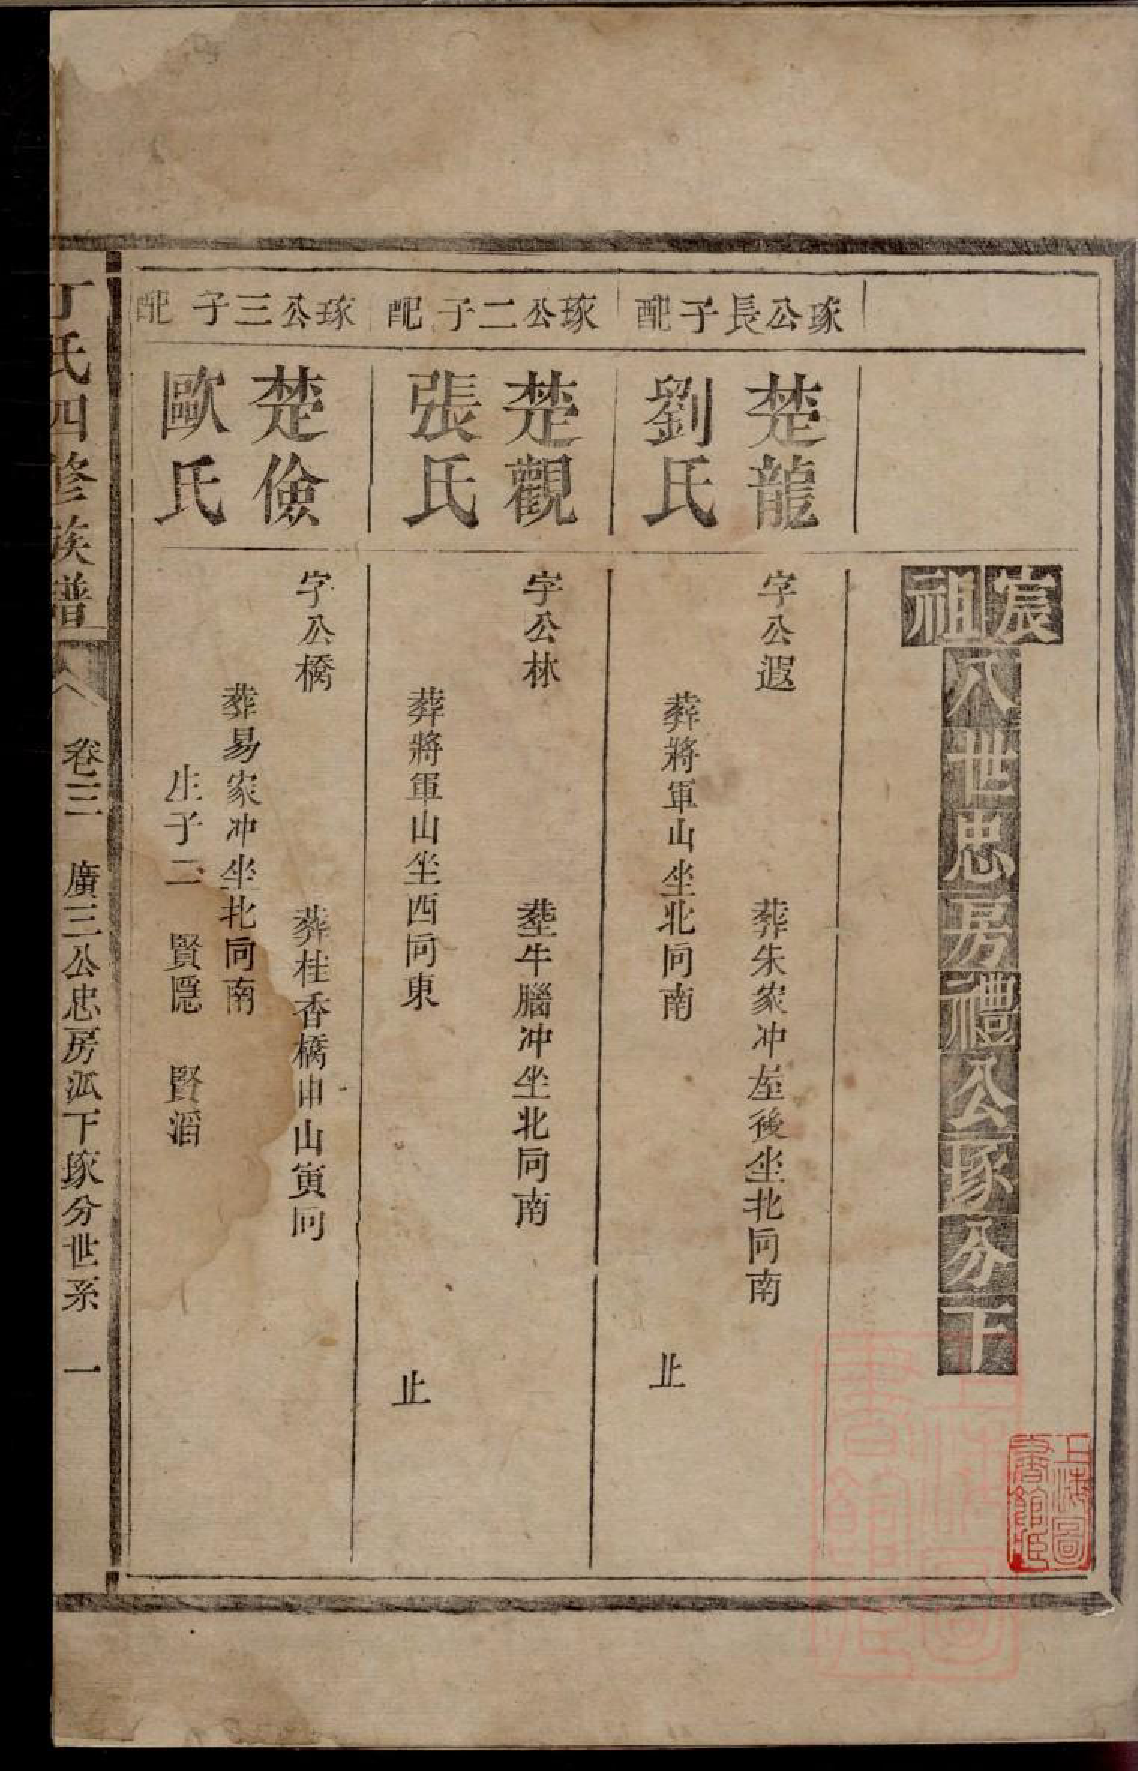 宸祖八世忠房禮公琢分下
琢公長子
楚龍
字公遐
葬朱家冲屋後坐北向南
配
劉氏
葬將軍山坐北向南
止
琢公二子
楚觀
字公林
葬牛腦冲坐北向南
配
張氏
葬將軍山坐西向東
止
琢公三子
楚儉
字公橋
葬桂香橋申山寅向
配
歐氏
葬易家冲坐北向南
生子二 賢隱 賢滔
丁氏四修族譜
卷三 廣三公忠房派下琢分世系 一
上海圖書館藏